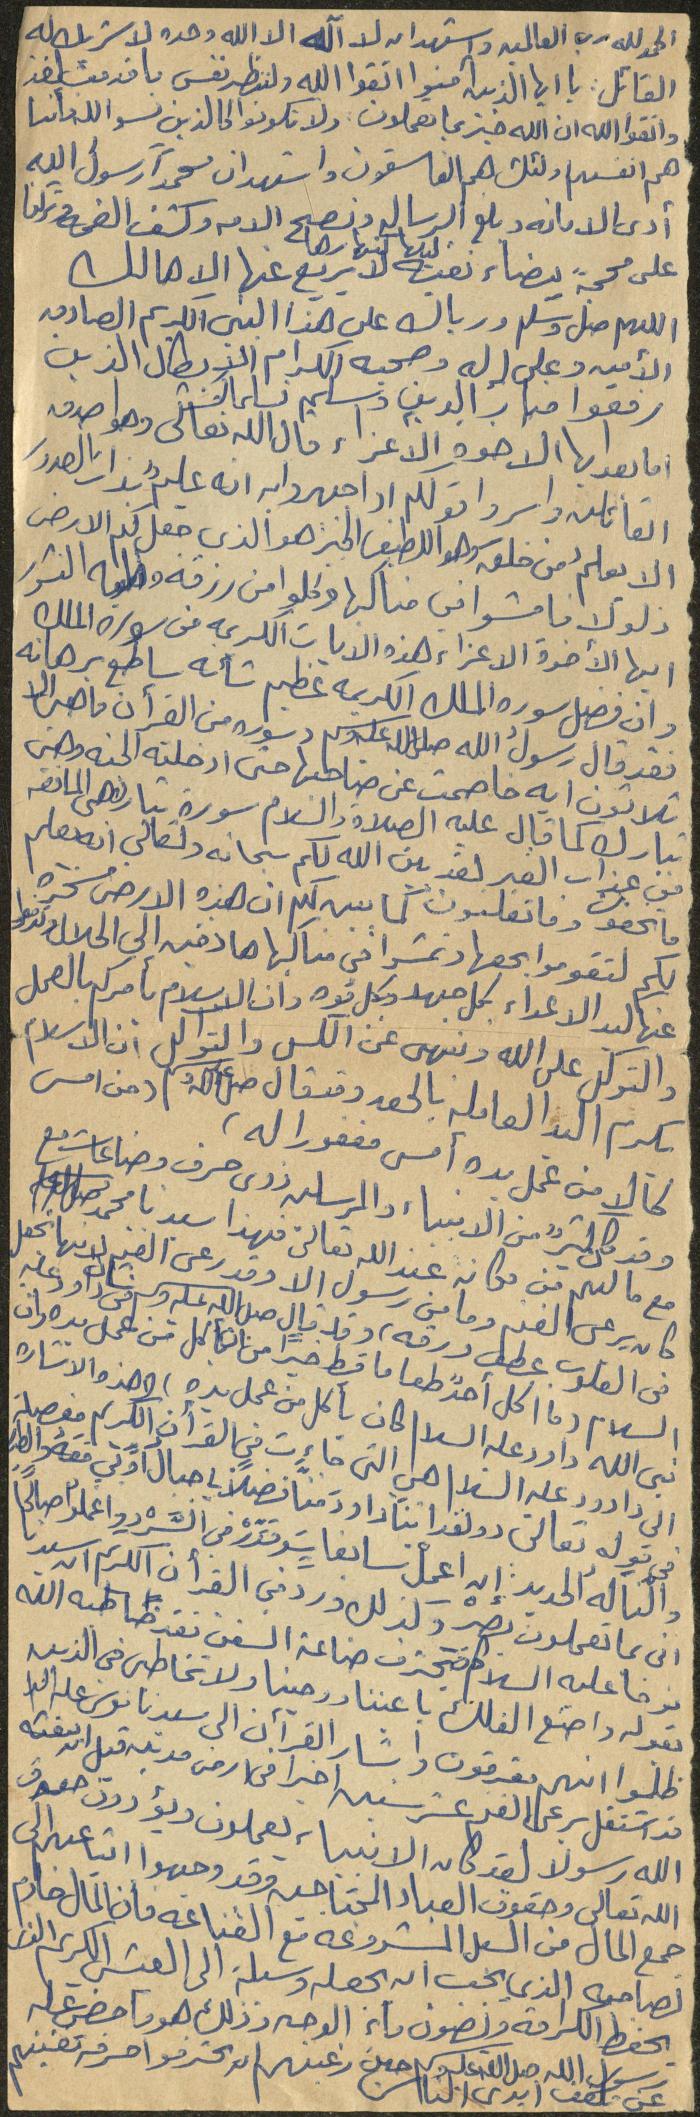 الحمد لله رب العالمين واشهد ان لا اله الا الله وحده لا شريك له
القائل: يا ايها الذين آمنوا اتقوا الله ولتنظر نفس ما قدمت لغد
واتقوا الله ان الله خبير بما تعملون ولا تكونوا كالذين نسوا الله فأنسا
هم انفسهم اولئك هم الفاسقون واشهد ان محمداً رسول الله
أدى الامانه وبلغ الرساله ونصح الامه وكشف الغمه وتركنا
على محجةً بيضاء نقيه ليلها كنهارها لا يزيع عنها الا هالك
اللهم صل وسلم وبارك على هذا النبي الكريم الصادق
الأمين وعلى اله وصحبه الكرام الابطال الذين
رفعوا منار الدين وسلم تسليما
اما بعد ايها الاخوه الاعزاء قال الله تعالى وهو اصدق
القائلين واسروا قولكم او اجهروا به انه عليم بذات الصدور
الا يعلم من خلق وهو اللطيف الخبير هو الذي جعل لكم الارض
ذلولا فامشوا في مناكبها وكلوا من رزقه واليه النشور
ايها الأخوة الاعزاء هذه الايات الكريمه من سورة الملك
وان فضل سورة الملك الكريمه عظيم شأنه ساطع برهانه
فقد قال رسول الله صلى الله عليه وسلم سوره من القرآن ما هي الا
ثلاثون ايه خاصمت عن صاحبها حتى ادخلته الجنه وهي
تبارك كما قال عليه الصلاة والسلام سورة تبارك هي المانعه
من عذاب القبر لقد بين الله لكم سبحانه وتعالى انه يعلم
ما تخفون وما تعلنون كما بين لكم ان هذه الارض مسخره
لكم لتقوموا بحقها وتمشوا في مناكبها هادفين الى الحلال
عنها ليد الاعداء بكل جهد وكل قوه وان الاسلام يأمركم بالعمل
والتوكل على الله وينهى عن الكسل والتواكل ان الاسلام
يكرم اليد العامله بالحق وقد قال صلى الله عليه وسلم (من امسى
كالا من عمل يده أمسى مغفورا له)
وقد كان كثير من الانبياء والمرسلين ذوي حرف وصناعات مع
مع ما لهم من مكانه عند الله تعالى فهذا سيدنا محمد
كان يرعى الغنم وما من رسول الا وقد رعى الغنم لانها تجعل
في القلوب عطف ورقه، وقد قال صلى الله عليه وسلم في داود عليه
السلام (ما اكل أحدٌ طعاما قط خيرا من ان يأكل من عمل يده وان
نبي الله داود عليه السلام كان يأكل من عمل يده) وهذه الاشاره
الى داود عليه السلام هي التي جاءت في القرآن الكريم مفصلة
في قوله تعالى (ولقد اتينا داود منا فضلاً يا جبال أوّبي معه والطير
والنّا له الحديد: إن اعمل سابغات وقدّر في السّرد واعملوا صالحاً
اني بما تعملون بصير) وكذلك ورد في القرآن الكريم ان سيدنا
نوحا عليه السلام احترف صناعة السفن فقد خاطبه الله
بقوله واصنع الفلك باعيننا ووحينا ولا تخاطبني في الذين
ظلموا انهم مغرقون واشار القرآن الى سيدنا موسى عليه السلام
قد اشتغل برعي الغنم عشر سنين اجيرا في ارض مدين قبل ان يبعثه
الله رسولا لقد كان الانبياء يعملون ويؤدون حقوق
الله تعالى وحقوق العباد المحتاجين وقد وجهوا اتباعهم الى
جمع المال من السبل المشروعه مع القناعه فان المال خادم
لصاحبه الذي يجب ان يجعله وسيلة الى العيش الكريم الذي
يحفظ الكرامة ويصون ماء الوجه وذلك هو ما حض عليه
رسول الله صلى الله عليه وسلم حين رغبهم ان يحترفوا حرفه تغنيهم
عن تكفف ايدي الناس